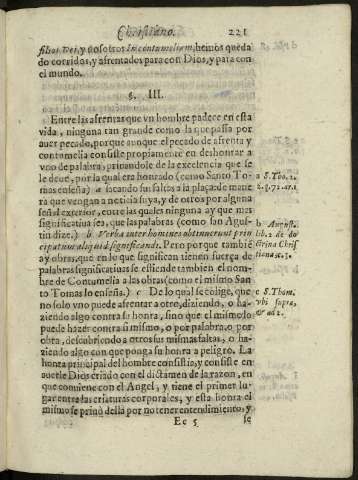 Christiano. 221
filios Dei, y nosotros In contumeliam, hemos queda
do corridos, y afrentados para con Dios, y para con
el mundo.
§. III.
Entre las afrentas que vn hombre padece en esta
vida, ninguna tan grande como la que passa por
auer pecado, porque aunque el pecado de afrenta y
contumelia consiste propiamente en deshonrar a
vno de palabra, priuandole de la excelencia que se
le deue, por la qual era honrado (como Santo To
mas enseña) a sacando sus faltas a la plaça: de mane
ra que vengan a noticia suya, y de otros por alguna
señal exterior, entre las quales ninguna ay que mas
significatiua sea, que las palabras (como san Agus
tin dize.) b Verba inter homines obtinuerunt prin
cipatum aliquid significandi. Pero porque tambiē
ay obras, que en lo que significan tienen fuerça de
palabras significatiuas se estiende tambien el nom-
bre de Contumelia a las obras (como el mismo San
to Tomas lo enseña.) c De lo qual se colige, que
no solo vno puede afrentar a otro, diziendo, o ha-
ziendo algo contra su honra, sino que el mismo lo
puede hazer contra si mismo, o por palabra, o por
obra, descubriendo a otros sus mismas faltas, o ha-
ziendo algo con que ponga su honra a peligro. La
honra principal del hombre consistio, y consiste en
auerle Dios criado con el dictamen de la razon, en
que conuiene con el Angel, y tiene el primer lu-
gar entre las criaturas corporales, y esta honra el
mismo se priuò della por no tener entendimiento, y
Ee 5 se
a S. Tho. 2.
2. q. 72. ar. 1
b August.
lib. 2. de do
ctrina Chris
tiana c. 3.
c S. Thom.
vbi supra,
ad 2.